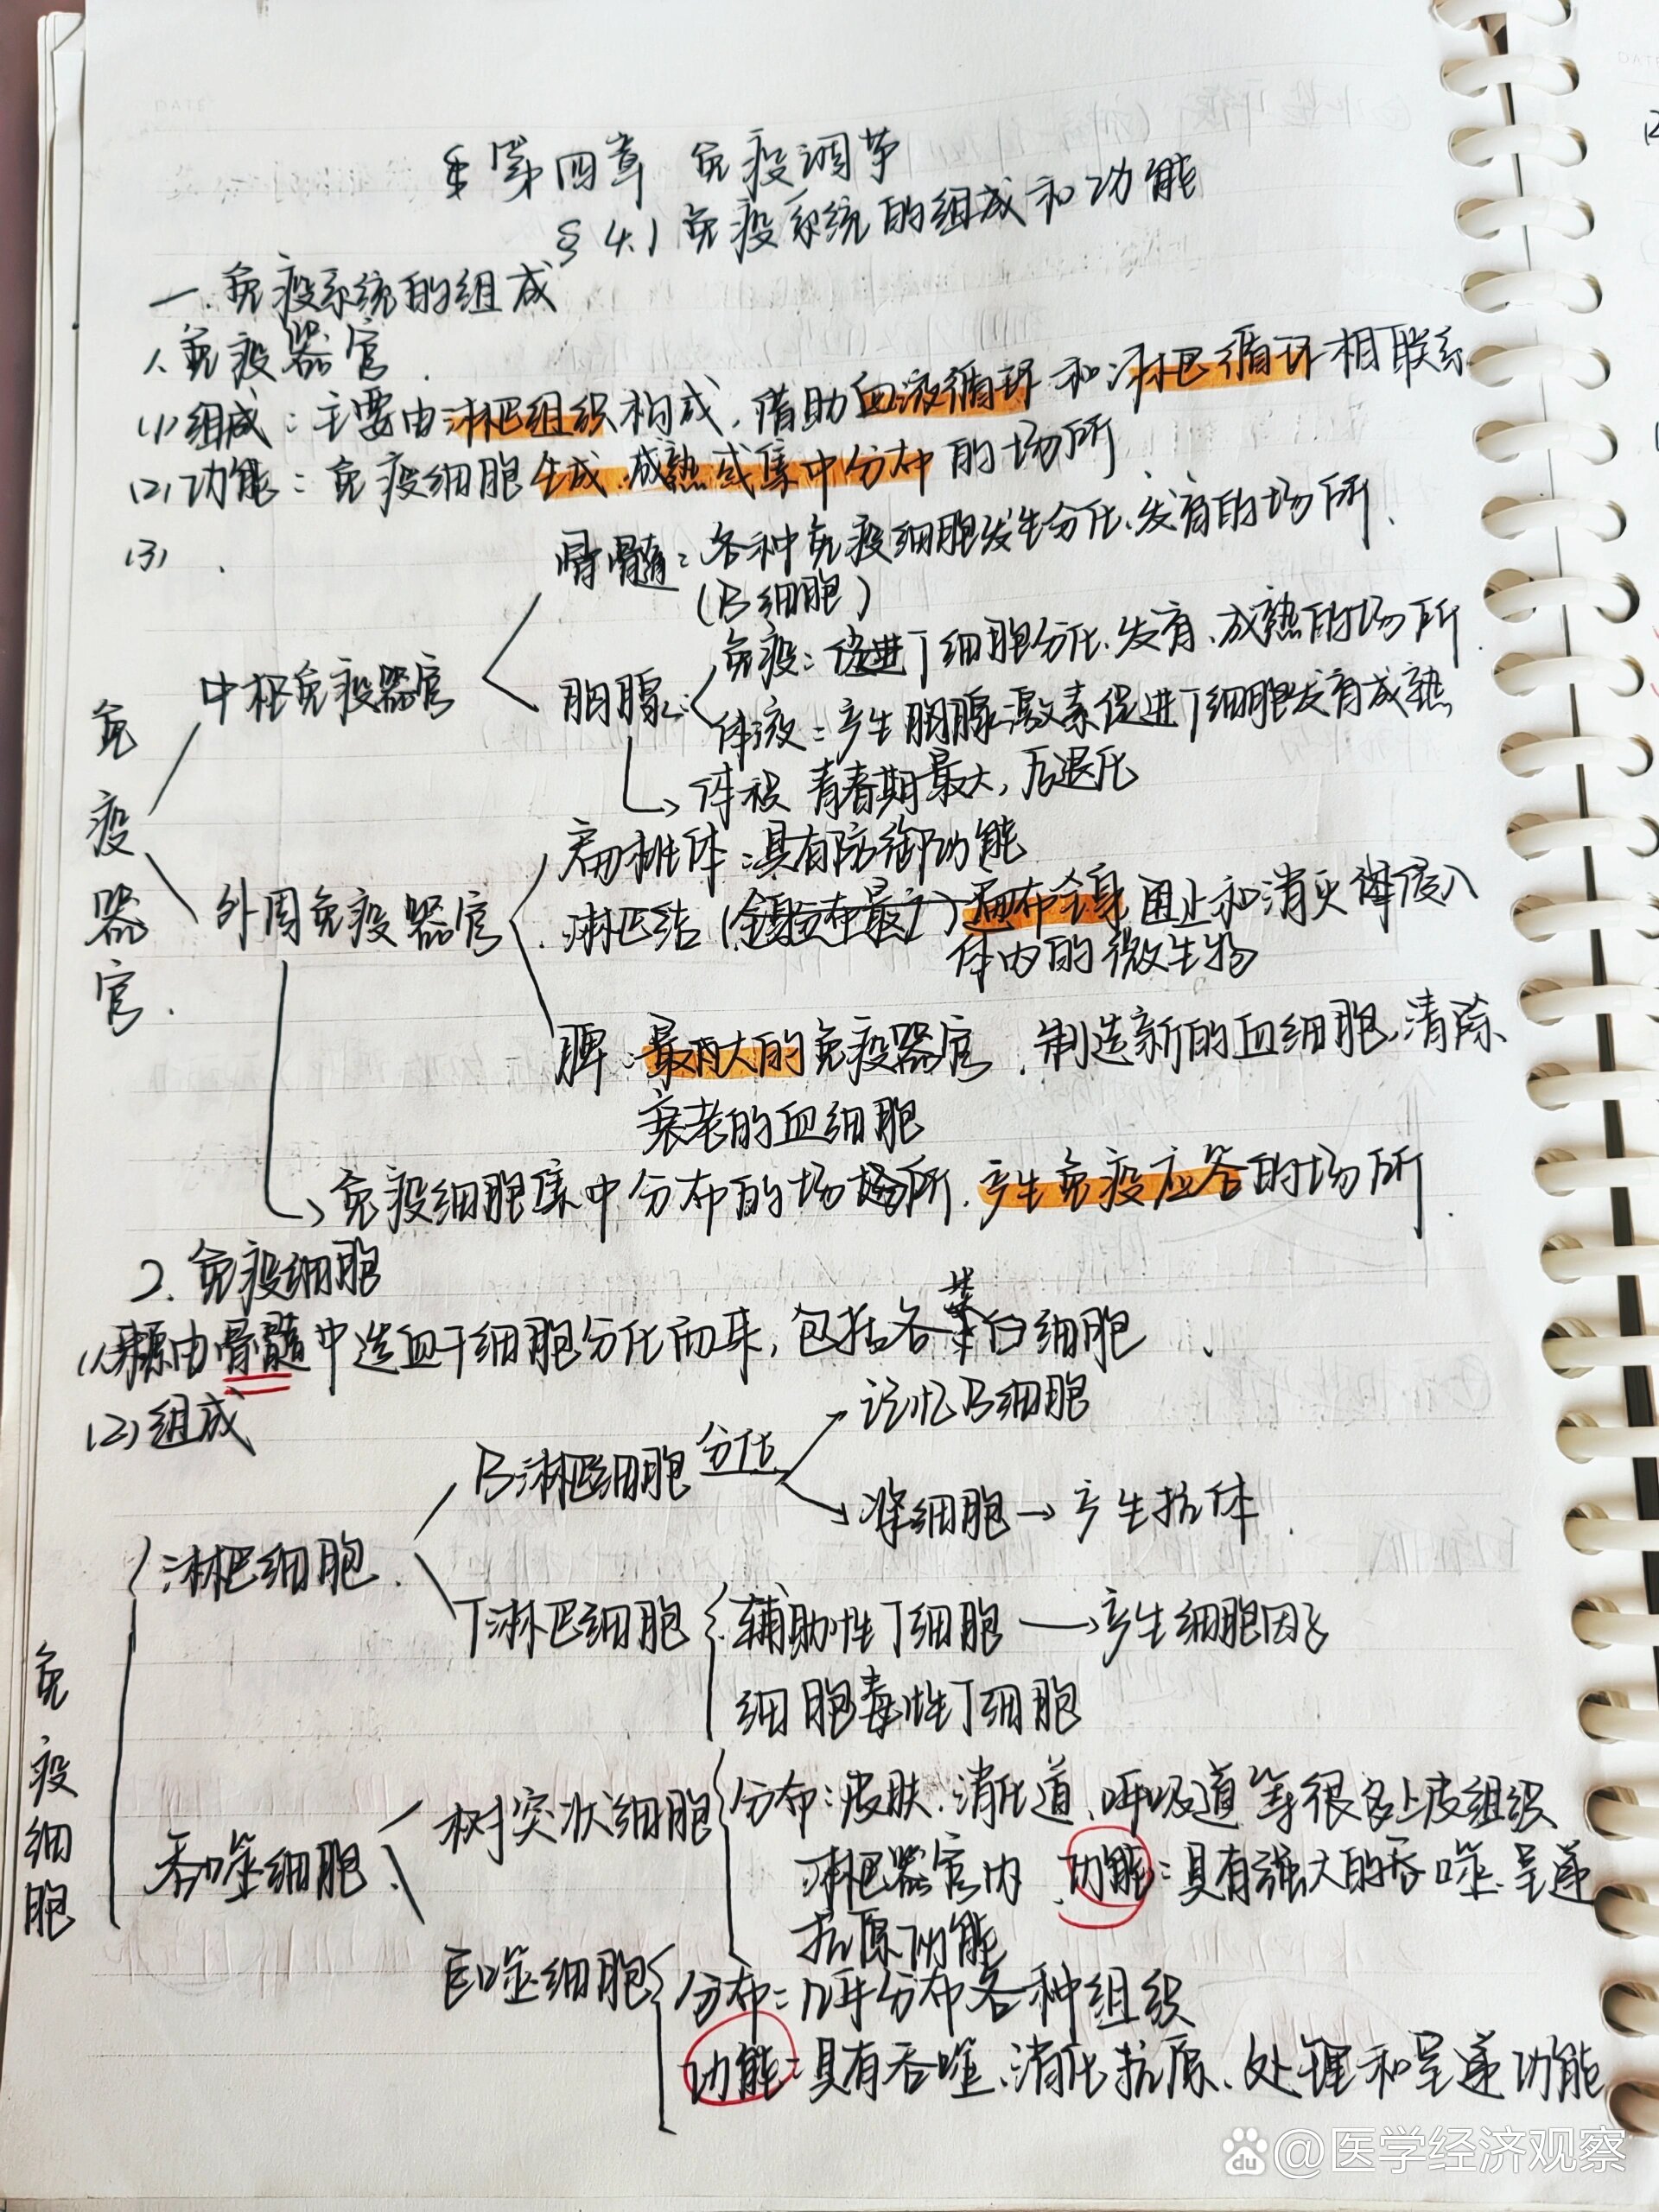 第四章 免疫调节
§4.1 免疫系统的组成和功能
一.免疫系统的组成
1.免疫器官.
(1)组成：主要由淋巴组织构成，借助血液循环和淋巴循环相联系
(2)功能：免疫细胞生成.成熟或集中分布的场所.
(3).
骨髓：各种免疫细胞发生分化、发育的场所.
(B细胞)
免疫器官.
中枢免疫器官
胸腺：
免疫：促进T细胞分化、发育、成熟的场所
体液：产生胸腺激素促进T细胞发育成熟
青春期最大，后退化
外周免疫器官
扁桃体：具有防御功能
淋巴结（）遍布全身 阻止和消灭侵入
体内的微生物
脾：最大的免疫器官.制造新的血细胞，清除
衰老的血细胞
免疫细胞集中分布的场所.产生免疫应答的场所.
2.免疫细胞
(1)来源由骨髓中造血干细胞分化而来，包括各类白细胞.
(2)组成
免疫细胞
淋巴细胞.
B淋巴细胞 分化
记忆B细胞
浆细胞→产生抗体.
T淋巴细胞
辅助性T细胞→产生细胞因子
细胞毒性T细胞
吞噬细胞
树突状细胞
分布：皮肤、消化道、呼吸道等很多上皮组织
淋巴器官内.功能：具有强大的吞噬.呈递
抗原功能
巨噬细胞
分布：几乎分布各种组织
功能：具有吞噬、消化抗原、处理和呈递功能
du @医学经济观察